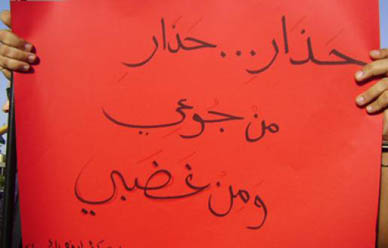 حَذَارِ... حَذَارِ
مِنْ جُوعِي
وَمِنْ غَضَبِي